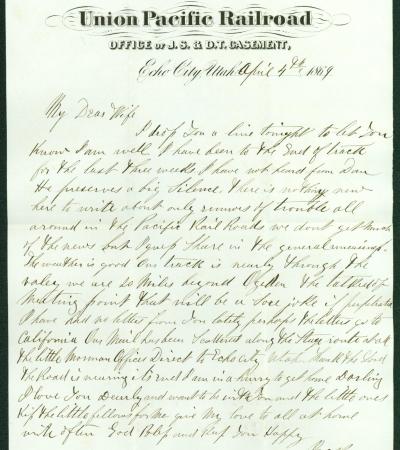 Union Pacific Railroad
OFFICE OF J. S. & D. T. CASEMENT,
Echo City, Utah April 4th, 1869
My Dear Wife
I drop You a line tonight to let You
Know I am well I have been to the End of track
for the last three weeks I have not heard from Dan
He preserves a big Silence. There is nothing new
here to write about only rumors of trouble all
around in the Pacific Rail Roads we dont get much
of the news but I guess Share in the general
The weather is good Our track is nearly through the
valey we are 20 Miles beyond Ogden the
Meeting point that will be a Sore joke if
I have had no letter from You lately perhaps the letters go to
California Our Mail has been Scattered along the Stage route
the little Mormon Offices Direct to Echo City
the Road is nearing its end I am in a Hurry to get home Darling
I love You Dearly and want to be with You and the little ones
Kiss the little fellows for me give My love to all at home
write often God Bless and Keep You Happy